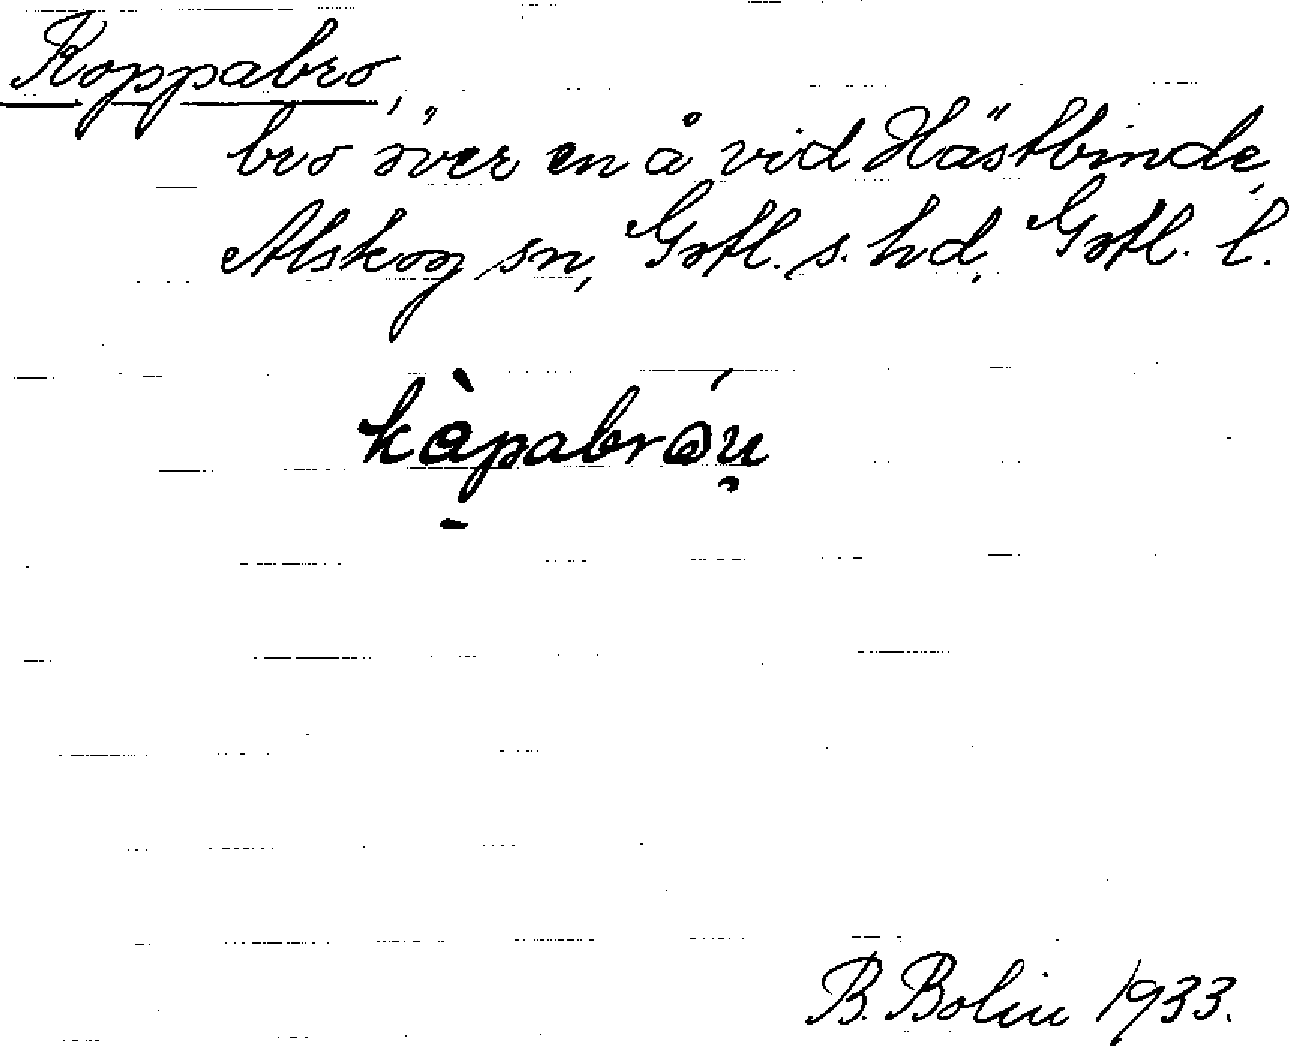 Koppabro,
bro över en å vid Hästbinde,
Alskog sn, Gotl. s. hd, Gotl. l.
kàpabrǻu̯
B. Bolin 1933.